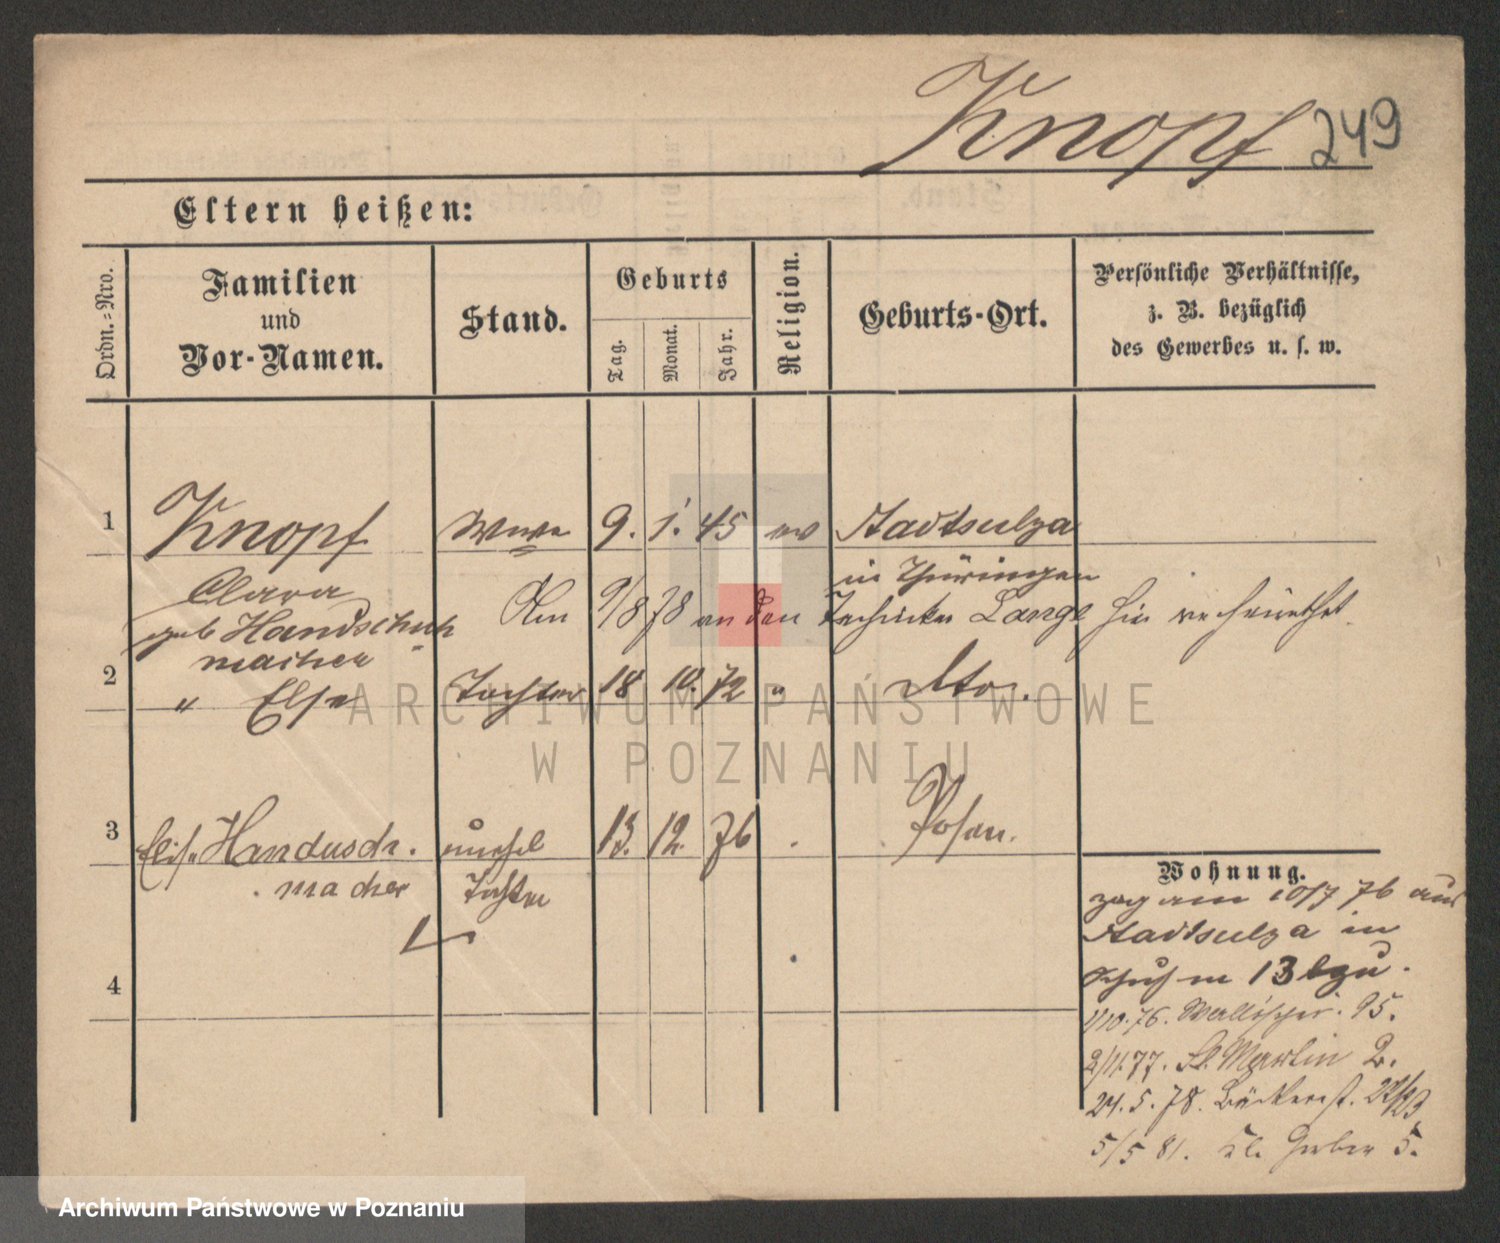 Knopf 249
Eltern heißen:
Ordn.-Nro.
Familien
und
Vor-Namen.
Stand.
Geburts
Tag.
Monat.
Jahr.
Religion.
Geburts-Ort.
Persönliche Verhältnisse,
z. B. bezüglich
des Gewerbes u. s. w.
1 Knopf Wwe 9. 1. 45 ev Stadtsulza
in Thüringen
Clara
Am 9/8 78 an den Techniker Lange hier verheirathet.
geb Handschuh
macher
2 " Else Tochter 18 10. 72 " dto.
3 Elise Handusch. unehel 13. 12. 76 . Posen.
macher Tochter
4
Wohnung.
zog am 10/7 76 aus
Stadtsulza in
13
1/10.76. 95.
2/11.77. St. Martin 2.
24.5.78. Bäckerst. 22/23
5/5 81. Kl. Gerber 5.
ARCHIWUM PAŃSTWOWE
W POZNANIU
Archiwum Państwowe w Poznaniu